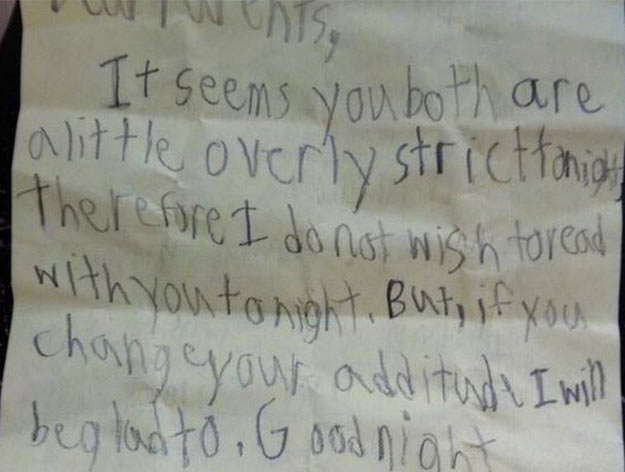 Dear Parents,
It seems you both are
a little overly strict tonight,
therefore I do not wish to read
with you tonight. But, if you
change your additude I will
be glad to. Good night